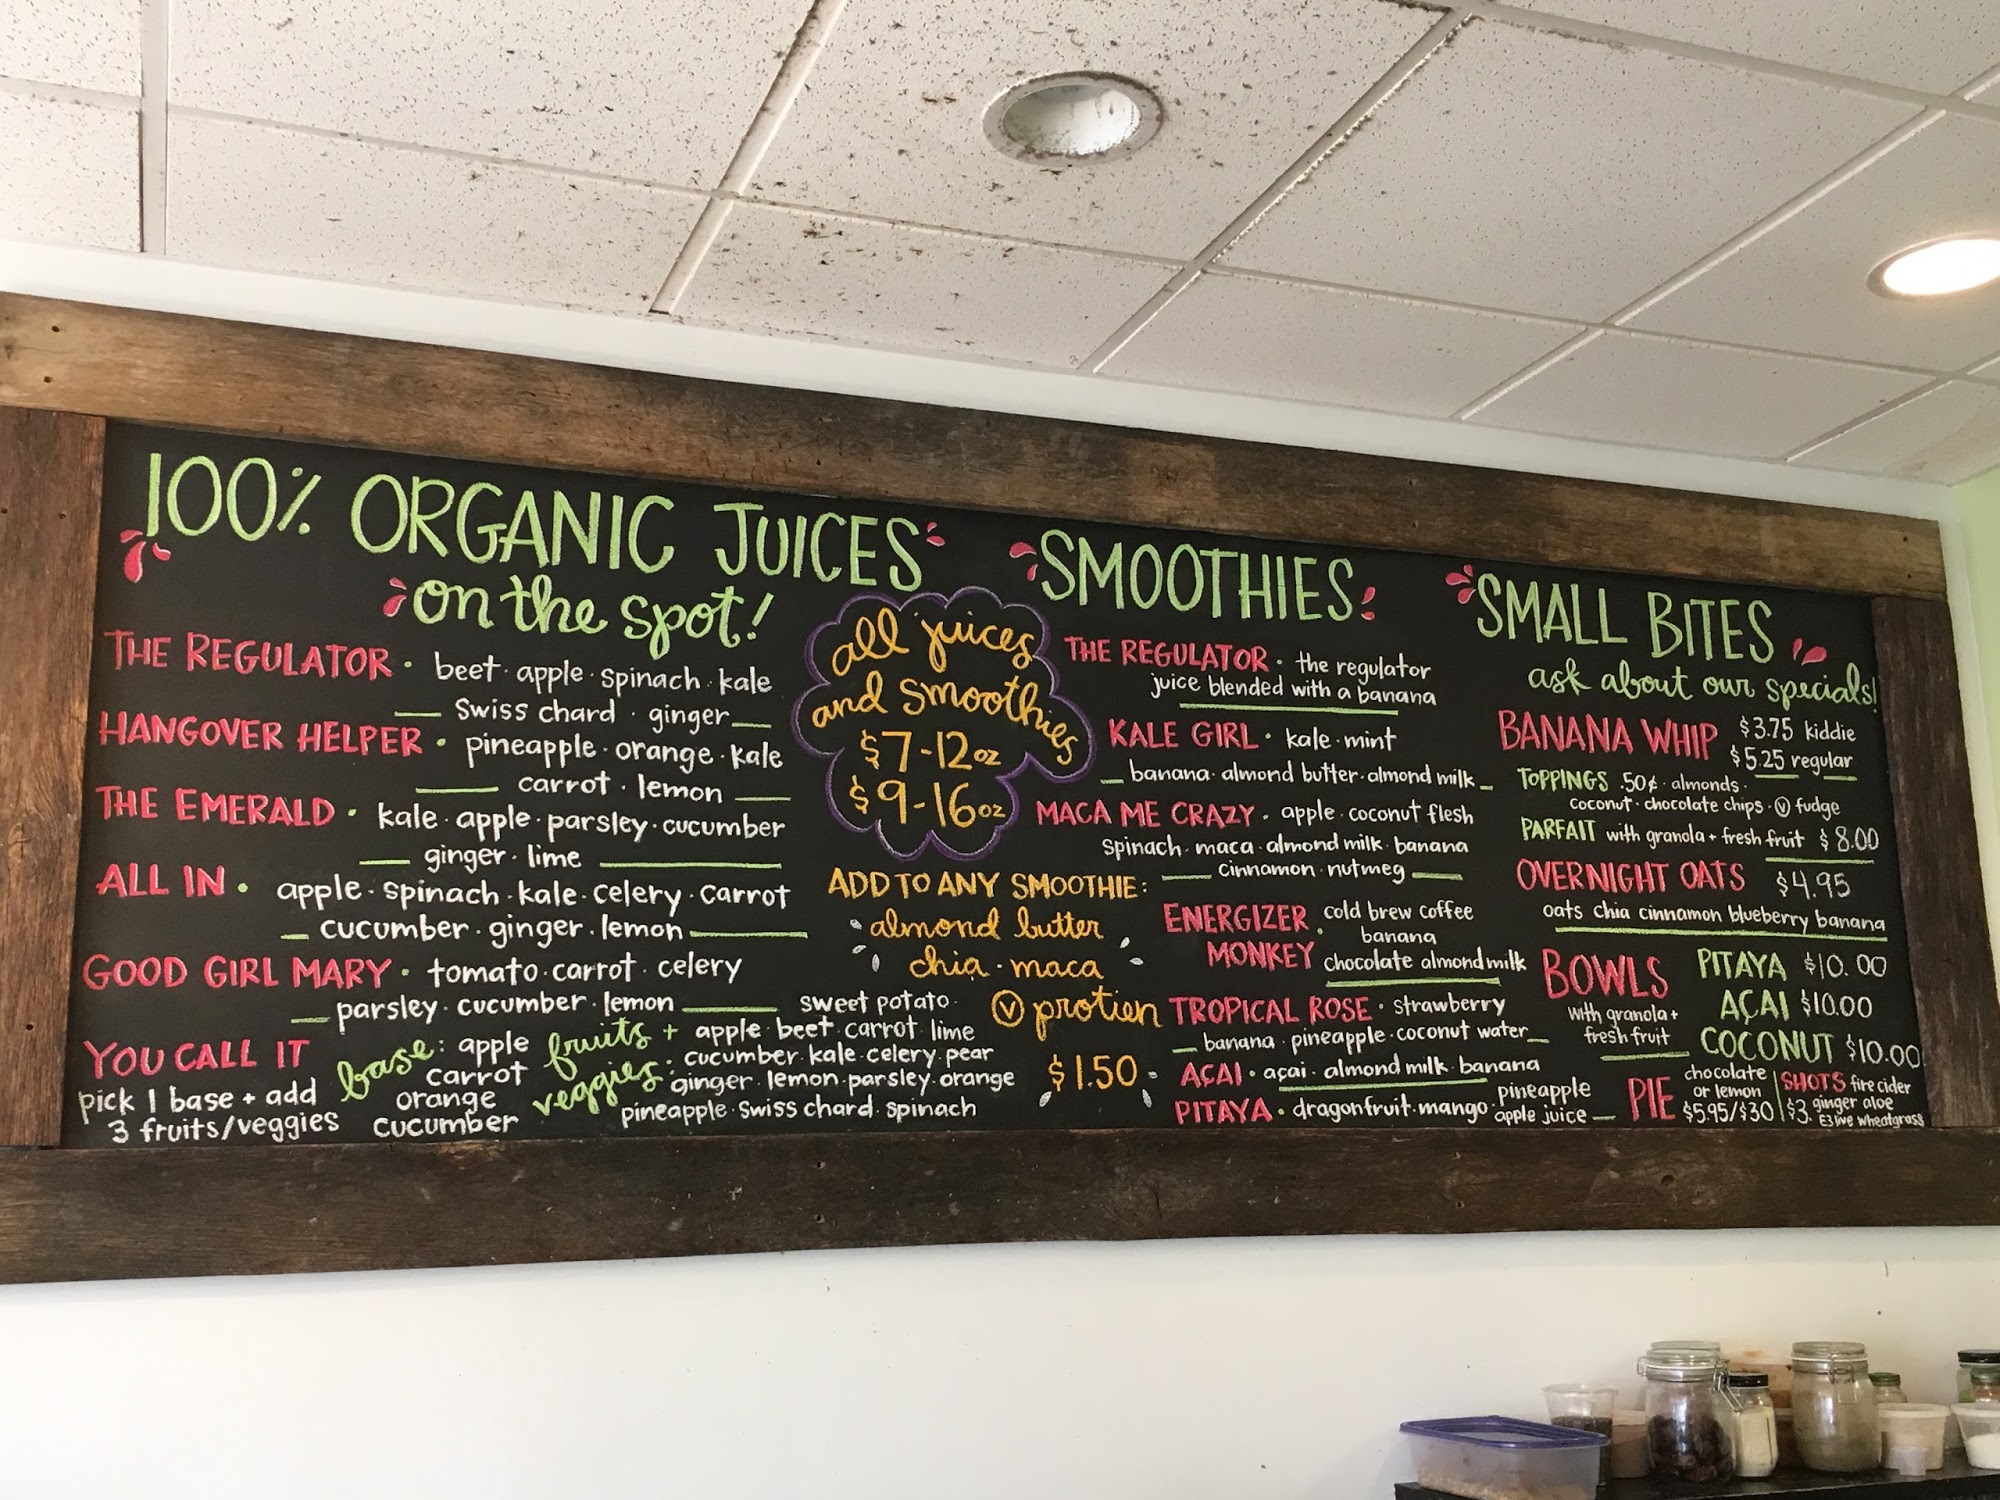 100% ORGANIC JUICES
on the spot!
THE REGULATOR · beet · apple · spinach · kale
swiss chard · ginger
HANGOVER HELPER · pineapple · orange · kale
carrot · lemon
THE EMERALD · kale · apple · parsley · cucumber
ginger · lime
ALL IN · apple · spinach · kale · celery · carrot
cucumber · ginger · lemon
GOOD GIRL MARY · tomato · carrot · celery
parsley · cucumber · lemon
YOU CALL IT
pick 1 base + add
3 fruits/veggies
base: apple
carrot
orange
cucumber
fruits +
veggies:
sweet potato ·
apple · beet · carrot · lime
cucumber · kale · celery · pear
ginger · lemon · parsley · orange
pineapple · swiss chard · spinach
all juices
and smoothies
$7-12oz
$9-16oz
ADD TO ANY SMOOTHIE:
almond butter
chia · maca
Ⓥ protien
$1.50
SMOOTHIES
THE REGULATOR · the regulator
juice blended with a banana
KALE GIRL · kale · mint
banana · almond butter · almond milk
MACA ME CRAZY · apple · coconut flesh
spinach · maca · almond milk · banana
cinnamon · nutmeg
ENERGIZER
MONKEY ·
cold brew coffee
banana
chocolate almond milk
TROPICAL ROSE · strawberry
banana · pineapple · coconut water
AÇAI · açai · almond milk · banana
PITAYA · dragonfruit · mango · pineapple
apple juice
SMALL BITES
ask about our specials!
BANANA WHIP $3.75 kiddie
$5.25 regular
TOPPINGS .50¢ · almonds ·
coconut · chocolate chips · Ⓥ fudge
PARFAIT with granola + fresh fruit $8.00
OVERNIGHT OATS $4.95
oats chia cinnamon blueberry banana
BOWLS
with granola +
fresh fruit
PITAYA $10.00
AÇAI $10.00
COCONUT $10.00
PIE
chocolate
or lemon
$5.95/$30
SHOTS fire cider
$3. ginger aloe
E3live wheatgrass